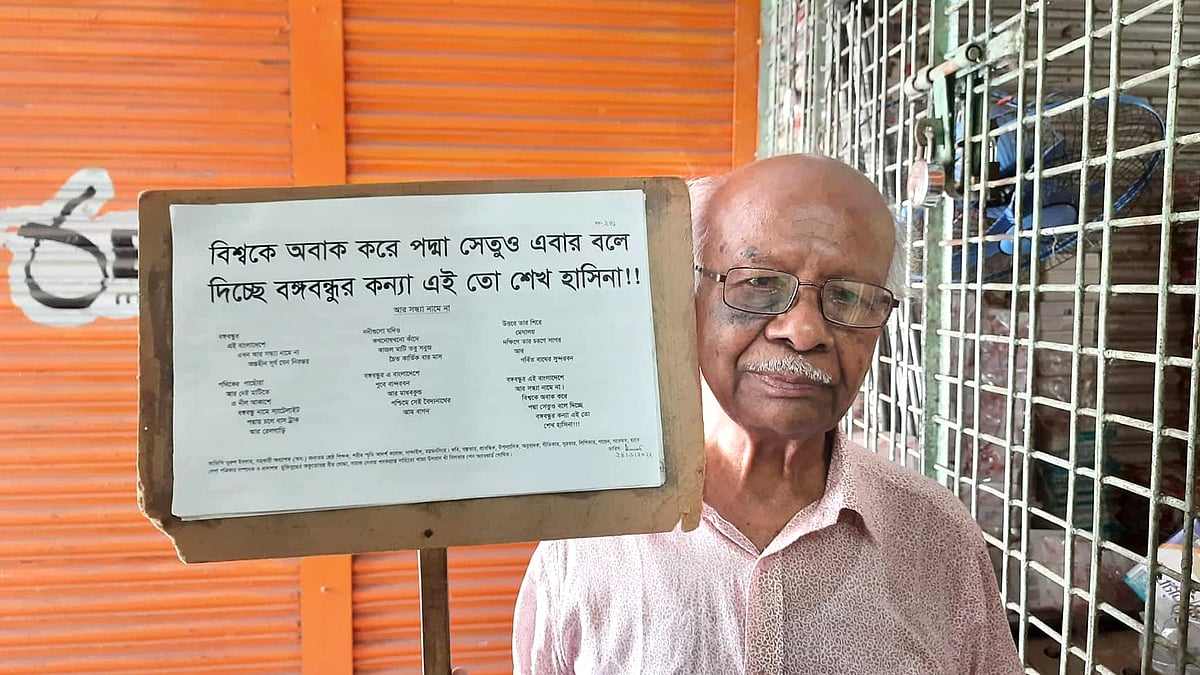 বিশ্বকে অবাক করে পদ্মা সেতুও এবার বলে
দিচ্ছে বঙ্গবন্ধুর কন্যা এই তো শেখ হাসিনা!!
আর সন্ধ্যা নামে না
বঙ্গবন্ধু
এই বাংলাদেশে
এখন আর সন্ধ্যা নামে না
অন্তহীন সূর্য যেন নিরন্তর
পথিকের পাহোঁয়া
আর নেই মাটিতে
এ নীল আকাশে
বঙ্গবন্ধু নামে স্যাটেলাইট
পদ্মায় চলে বাস ট্রাক
আর রেলগাড়ি
নদীগুলো যদিও
কখনোখনো কাঁদে
কাজল মাটি তবু সবুজ
চৈত্র কার্তিক বার মাস
বঙ্গবন্ধুর এ বাংলাদেশে
পুবে বান্দরবন
আর মাধবকুন্ড
পশ্চিমে সেই বৈদ্যনাথের
আম বাগন
উত্তরে তার শিরে
মেঘালয়
দক্ষিণে তার চরণে সাগর
আর
গর্বিত বাঘের সুন্দরবন
বঙ্গবন্ধুর এই বাংলাদেশে
আর সন্ধ্যা নামে না।
বিশ্বকে অবাক করে
পদ্মা সেতুও বলে দিচ্ছে
বঙ্গবন্ধুর কন্যা এই তো
শেখ হাসিনা!!!